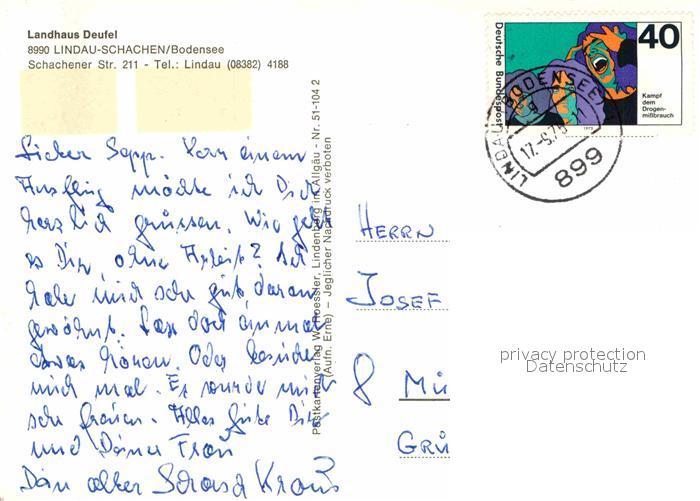 Landhaus Deufel
8990 LINDAU-SCHACHEN/Bodensee
Schachener Str. 211 - Tel.: Lindau (08382) 4188
Deutsche Bundespost
40
Kampf
dem
Drogen-
mißbrauch
1975
LINDAU (BODENSEE)
17.-9.75
899
Lieber Sepp. Von einem
Ausflug möchte ich Dich
herzlich grüssen. Wie geht
es Dir, ohne Arbeit? Ich
habe mich sehr gut daran
gewöhnt. Lass doch einmal
etwas hören. Oder besuche
mich mal. Es würde mich
sehr freuen. Alles Gute Dir
und Deiner Frau
Dein alter Kraus
Postkartenverlag W. Roessler, Lindenberg im Allgäu - Nr. 51-104 2
(Aufn. Erne) – Jeglicher Nachdruck verboten
HERRN
JOSEF
8 MÜ
GRÜ
privacy protection
Datenschutz